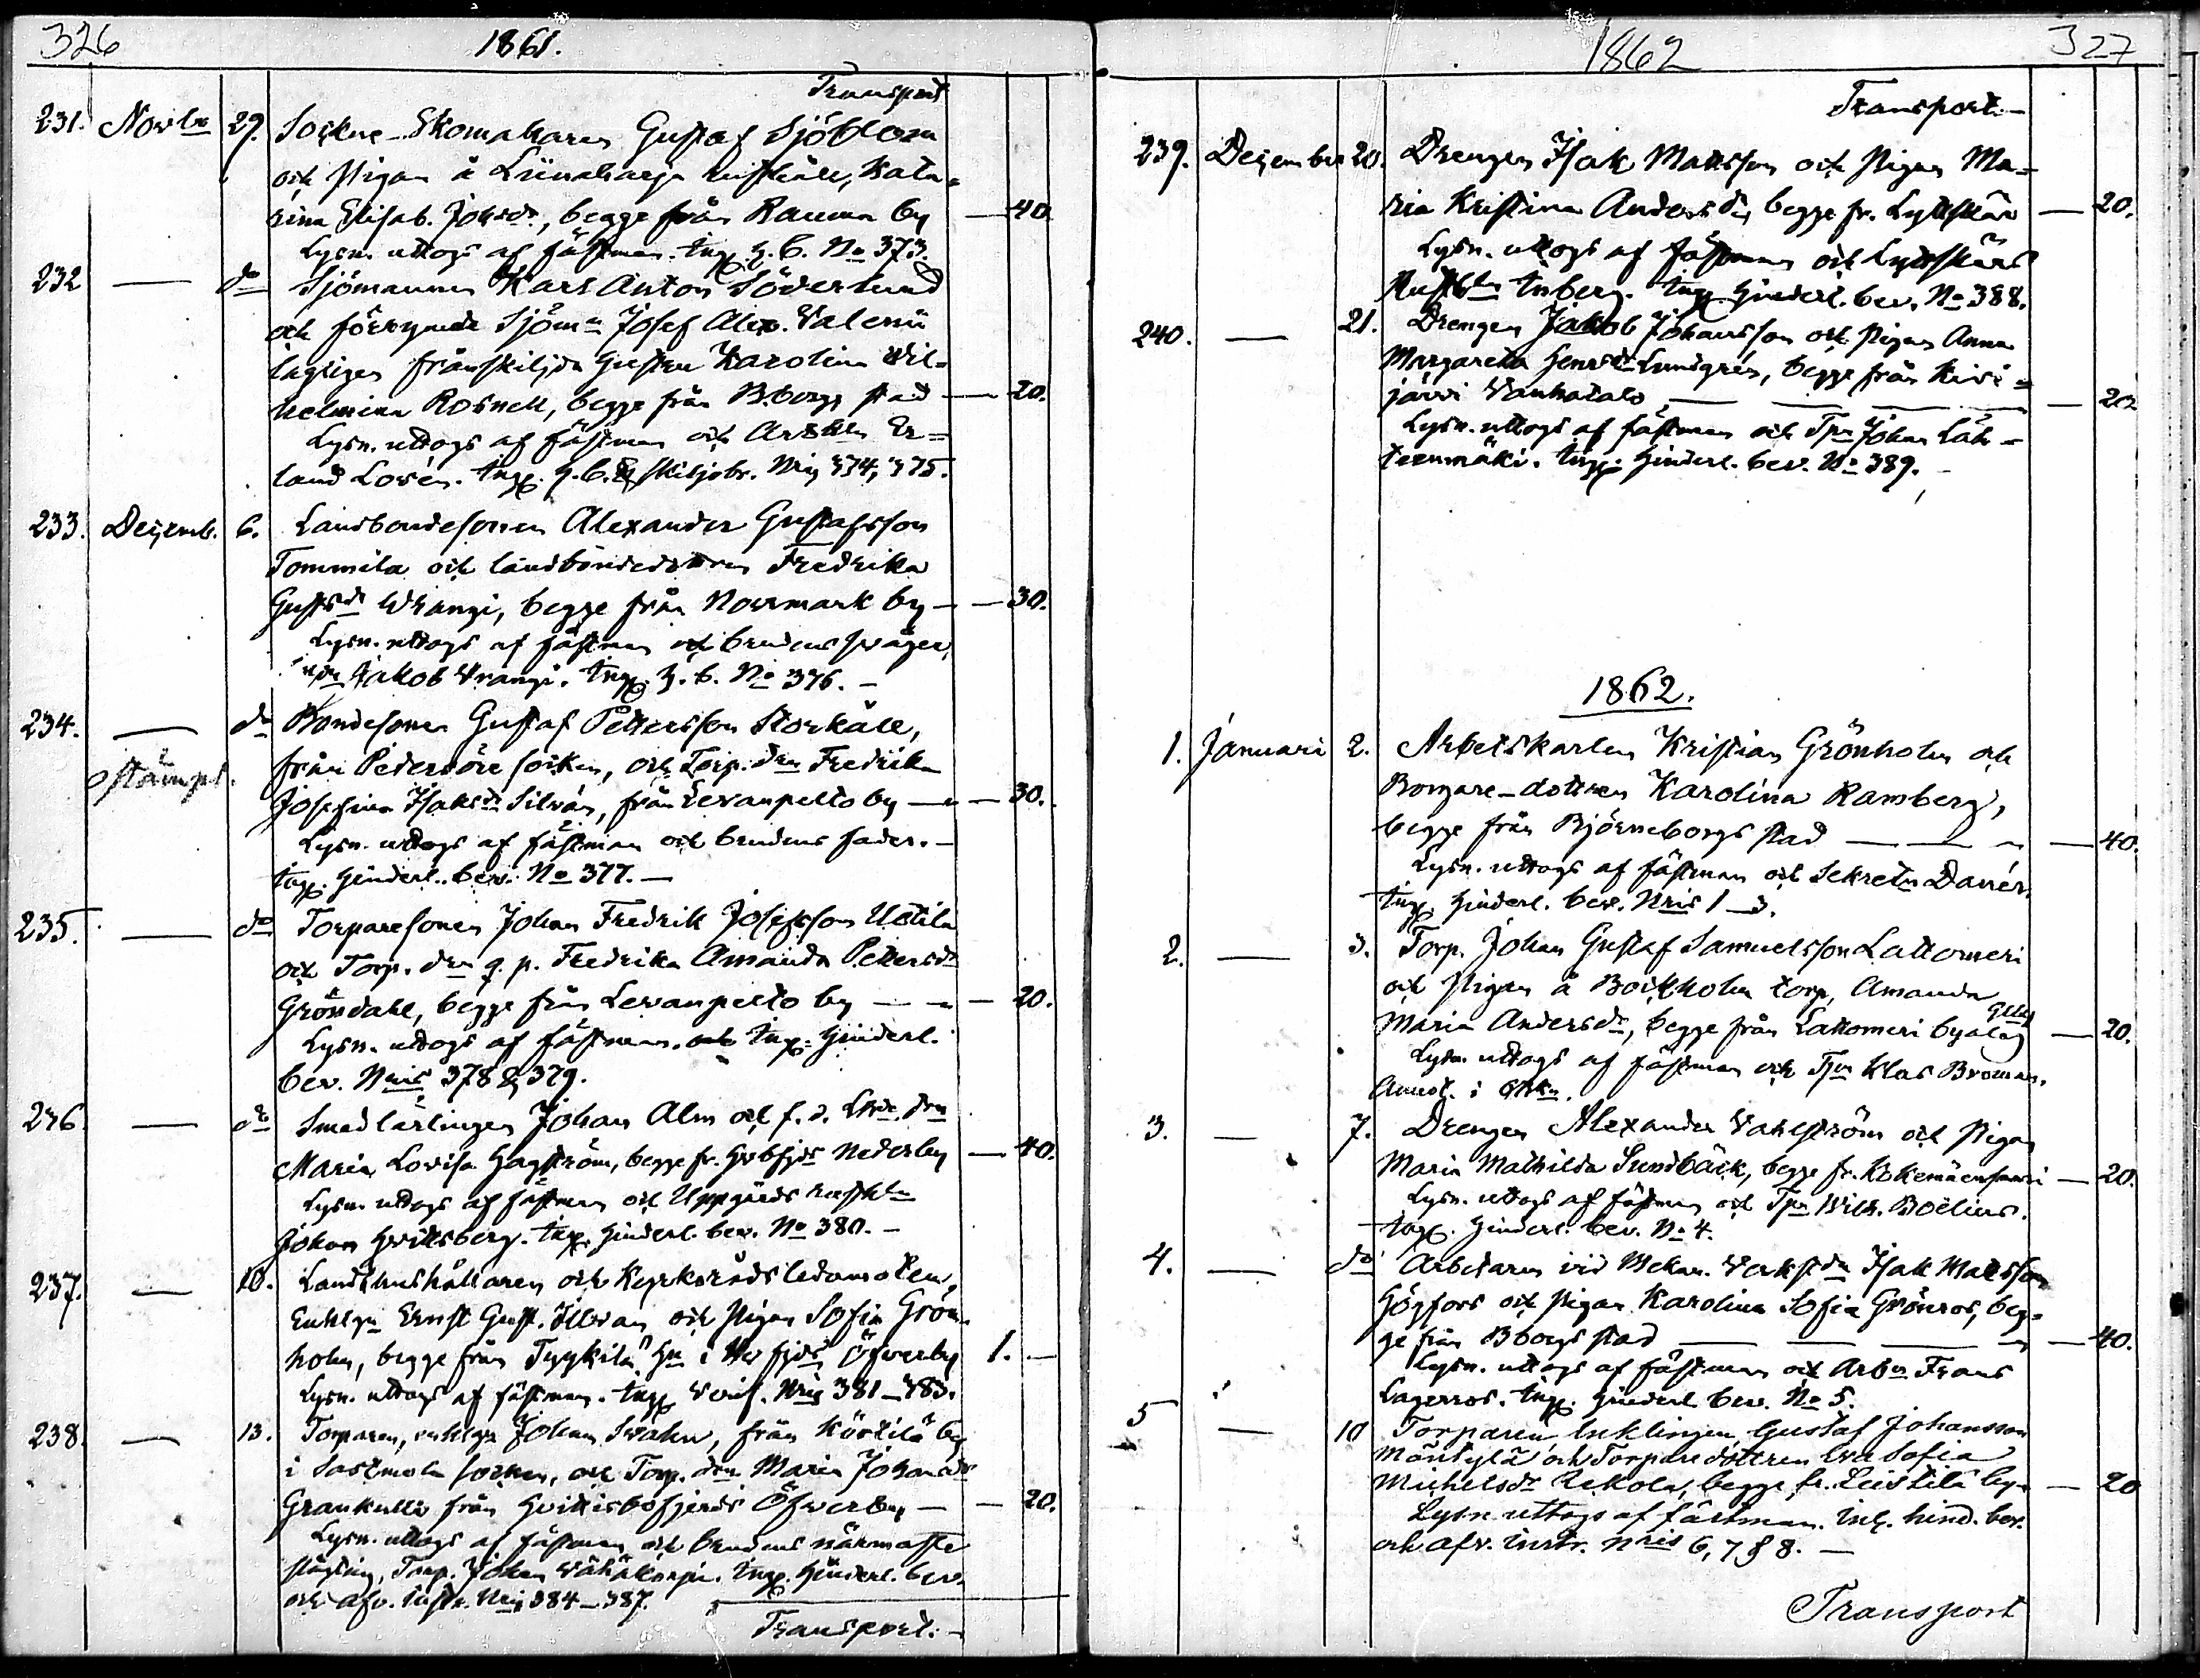 326
1861.
Transport
231. Novbr 29. Sockne-Skomakaren Gustaf Sjöblom
och Pigan å Liinaharja rusthåll, Kata-
rina Elisab. Johsdr, begge från Rauma by — 40
Lysn. uttogs af fästman. Ingg. h. b. No 373.
232 — do Sjömannen Karl Anton Söderlund
och förrymde Sjömn Josef Alex. Valenii
lagligen frånskiljda hustru Karolina Wil-
helmina Rosnell, begge från B.borgs stad — 20.
Lysn. uttogs af fästman och Er-
land Lovén. Ingg. h. b. & skiljobr. Nris 374, 375.
233. Dezemb. 6. Landbondesonen Alexander Gustafsson
Tommila och landbondedottren Fredrika
Gustsdr Wrangi, begge från Norrmark by — 30.
Lysn. uttogs af fästman och brudens svåger,
Jakob Wrangi. Ingg. h. b. No 376. —
234. — do Bondesonen Gustaf Pettersson Storkåll,
stämpl.
från Pedersöre socken, och Torp. drn Fredrika
Josefina Isaksdr Silván, från Levanpelto by — 30.
Lysn. uttogs af fästman och brudens fader. —
Ingg. hinderl. bev. No 377. —
235. — do Torparesonen Johan Fredrik Josefsson Uotila
och Torp. drn q. p. Fredrika Amanda Pettersdr
Gröndahl, begge från Levanpelto by — 20.
Lysn. uttogs af fästman. och Ingg. hinderl.
bev. Nris 378 & 379.
236. — do Smedlärlingen Johan Alm och f. d. drn
Maria Lovisa Hagström, begge fr. Hvbfjds Nederby — 40.
Lysn. uttogs af fästman och Uppgårds
Johan Hvittsberg. Ingg. hinderl. bev. No 380. —
237. — 10. Landthushållaren och Kyrkorådsledamoten,
Enklgn Ernst Gust. Illvan och Pigan Sofia Grön-
holm, begge från Tyykilä hn i Hvbfjds Öfverby 1. —
Lysn. uttogs af fästman. Ingg. Verif. Nris 381—383.
238. — 13. Torparen, enklgn Johan Svahn, från Körtilä by
i Sastmola socken, och Torp. drn Maria Johansdr
Grankulla från Hvittisbofjerds Öfverby — 20.
Lysn. uttogs af fästman och brudens närmaste
slägting, Torp. Johan Wähäkorpi. Ingg. hinderl. bev.
och afv. Instr. Nris 384—387.
Transport. —
1862
327
Transport. —
239. Dezember 20. Drengen Isak Mattsson och Pigan Ma-
ria Kristina Andersdr, begge fr. Lyttskär — 20.
Lysn. uttogs af fästman och Lyttskärs
Inberg. Ingg. hinderl. bev. No 388.
240. — 21. Drengen Jakob Johansson och Pigan Anna
Margareta Henrsdr Lundgrén, begge från Kivi-
järvi Vanhatalo — 20
Lysn. uttogs af fästman och Tpn Johan Läh-
teenmäki. Ingg. hinderl. bev. No 389. —
1862.
1. Januari 2. Arbetskarlen Kristian Grönholm och
Borgare-dottren Karolina Ramberg,
begge från Björneborgs stad — 40.
Lysn. uttogs af fästman och Sekretn Danér.
Ingg. hinderl. bev. Nris 1—3.
2. — 3. Torp. Johan Gustaf Samuelsson Lattomeri
och Pigan å Bockholm torp, Amanda
Maria Andersdr, begge från Lattomeri byalag — 20.
Lysn. uttogs af fästman och Tpn Klas Broman.
Annot. i
3. — 7. Drengen Alexander Vahlström och Pigan
Maria Mathilda Sundbäck, begge fr. Kokemäensaari — 20.
Lysn. uttogs af fästman och Tpn Wilh. Boëlius.
Ingg. hinderl. bev. No 4.
4. — do Arbetaren vid Mekan. Verkstdn Isak Mattsson
Högfors och Pigan Karolina Sofia Grönroos, beg-
ge från Bborgs stad — 40.
Lysn. uttogs af fästman och Arbn Frans
Lagerros. Ingg. hinderl. bev. No 5.
5 — 10 Torparen Enklingen Gustaf Johansson
Mäntylä och Torparedottren Eva Sofia
Michelsdr Rekola, begge fr. Leistilä by — 20
Lysn. uttogs af fästman. Inl. hind. bev.
och afv. Instr. Nris 6, 7 & 8. —
Transport